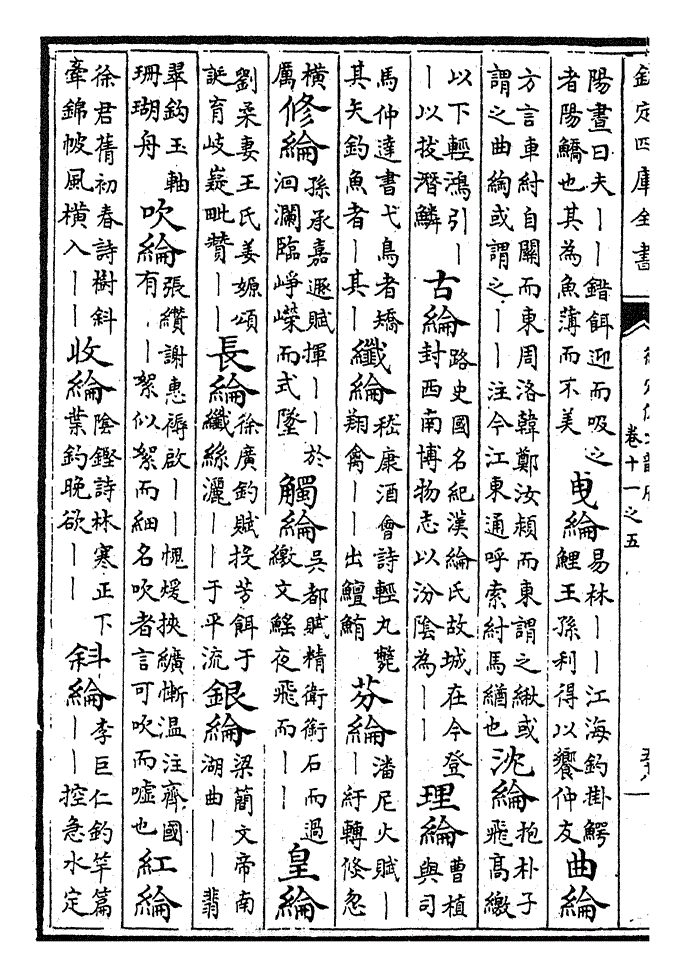 欽定四庫全書
卷十一之五
陽晝曰夫丨丨錯餌迎而吸之者陽鱎也其為魚薄而不美 曳綸 易林丨丨江海釣掛鰐鯉王孫利得以饗仲友 曲綸
方言車紂自關而東周洛韓鄭汝頴而東謂之緧或謂之曲綯或謂之丨丨注今江東通呼索紂馬緧也 沈綸 抱朴子飛高繳
以下輕鴻引丨丨以拔潛鱗 古綸 路史國名紀漢綸氏故城在今登封西南博物志以汾陰為丨丨 理綸 曹植與司
馬仲達書弋鳥者矯其矢釣魚者丨其丨 纖綸 嵇康酒會詩輕丸斃翔禽丨丨出鱣鮪 芬綸 潘尼火賦丨丨紆轉倏忽
橫厲 修綸 孫承嘉遯賦揮丨丨於洄瀾臨崢嶸而式墜 觸綸 吳都賦精衛銜石而遇繳文鰩夜飛而丨丨 皇綸
劉柔妻王氏姜嫄頌誕育岐嶷毗贊丨丨 長綸 徐廣釣賦投芳餌于纖絲灑丨丨于平流 銀綸 梁簡文帝南湖曲丨丨翡
翠鈎玉軸珊瑚舟 吹綸 張纘謝惠褥啟丨丨愧煖挾纊慚温注齊國有丨絮似絮而細名吹者言可吹而噓也 紅綸
徐君蒨初春詩樹斜牽錦帔風橫入丨丨 收綸 陰鏗詩林寒正下葉釣晚欲丨丨 斜綸 李巨仁釣竿篇丨丨控急水定